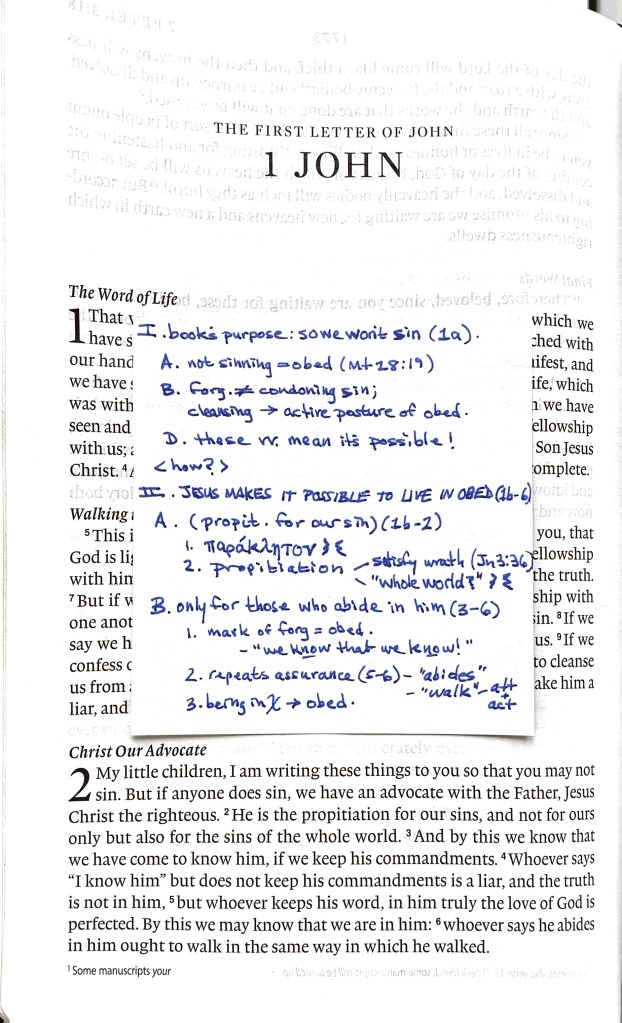 THE FIRST LETTER OF JOHN
1 JOHN
The Word of Life
1 That which we
have with
our hand and
we have which
was with we have
seen and
with us; Son Jesus
Christ. ⁴
Walking
⁵ This you, that
God is
with him the truth.
⁷ But if with
one sin. ⁸ If we
say we us. ⁹ If we
confess to cleanse
us from make him a
liar, and
I. book's purpose: so we won't sin (1a).
A. not sinning = obed (Mt 28:19)
B. Forg. ≠ condoning sin;
cleansing → active posture of obed.
D. these vv. mean it's possible!
<how?>
II. JESUS MAKES IT POSSIBLE TO LIVE IN OBED (1b-6)
A. (propit. for our sin) (1b-2)
1. παράκλητον } {
2. propitiation - satisfy wrath (Jn 3:36)
- "whole world?" } {
B. only for those who abide in him (3-6)
1. mark of forg = obed.
- "we know that we know!"
2. repeats assurance (5-6) - "abides"
- "walk" - att + act
3. being in X → obed.
Christ Our Advocate
2 My little children, I am writing these things to you so that you may not
sin. But if anyone does sin, we have an advocate with the Father, Jesus
Christ the righteous. ² He is the propitiation for our sins, and not for ours
only but also for the sins of the whole world. ³ And by this we know that
we have come to know him, if we keep his commandments. ⁴ Whoever says
“I know him” but does not keep his commandments is a liar, and the truth
is not in him, ⁵ but whoever keeps his word, in him truly the love of God is
perfected. By this we may know that we are in him: ⁶ whoever says he abides
in him ought to walk in the same way in which he walked.
¹ Some manuscripts your